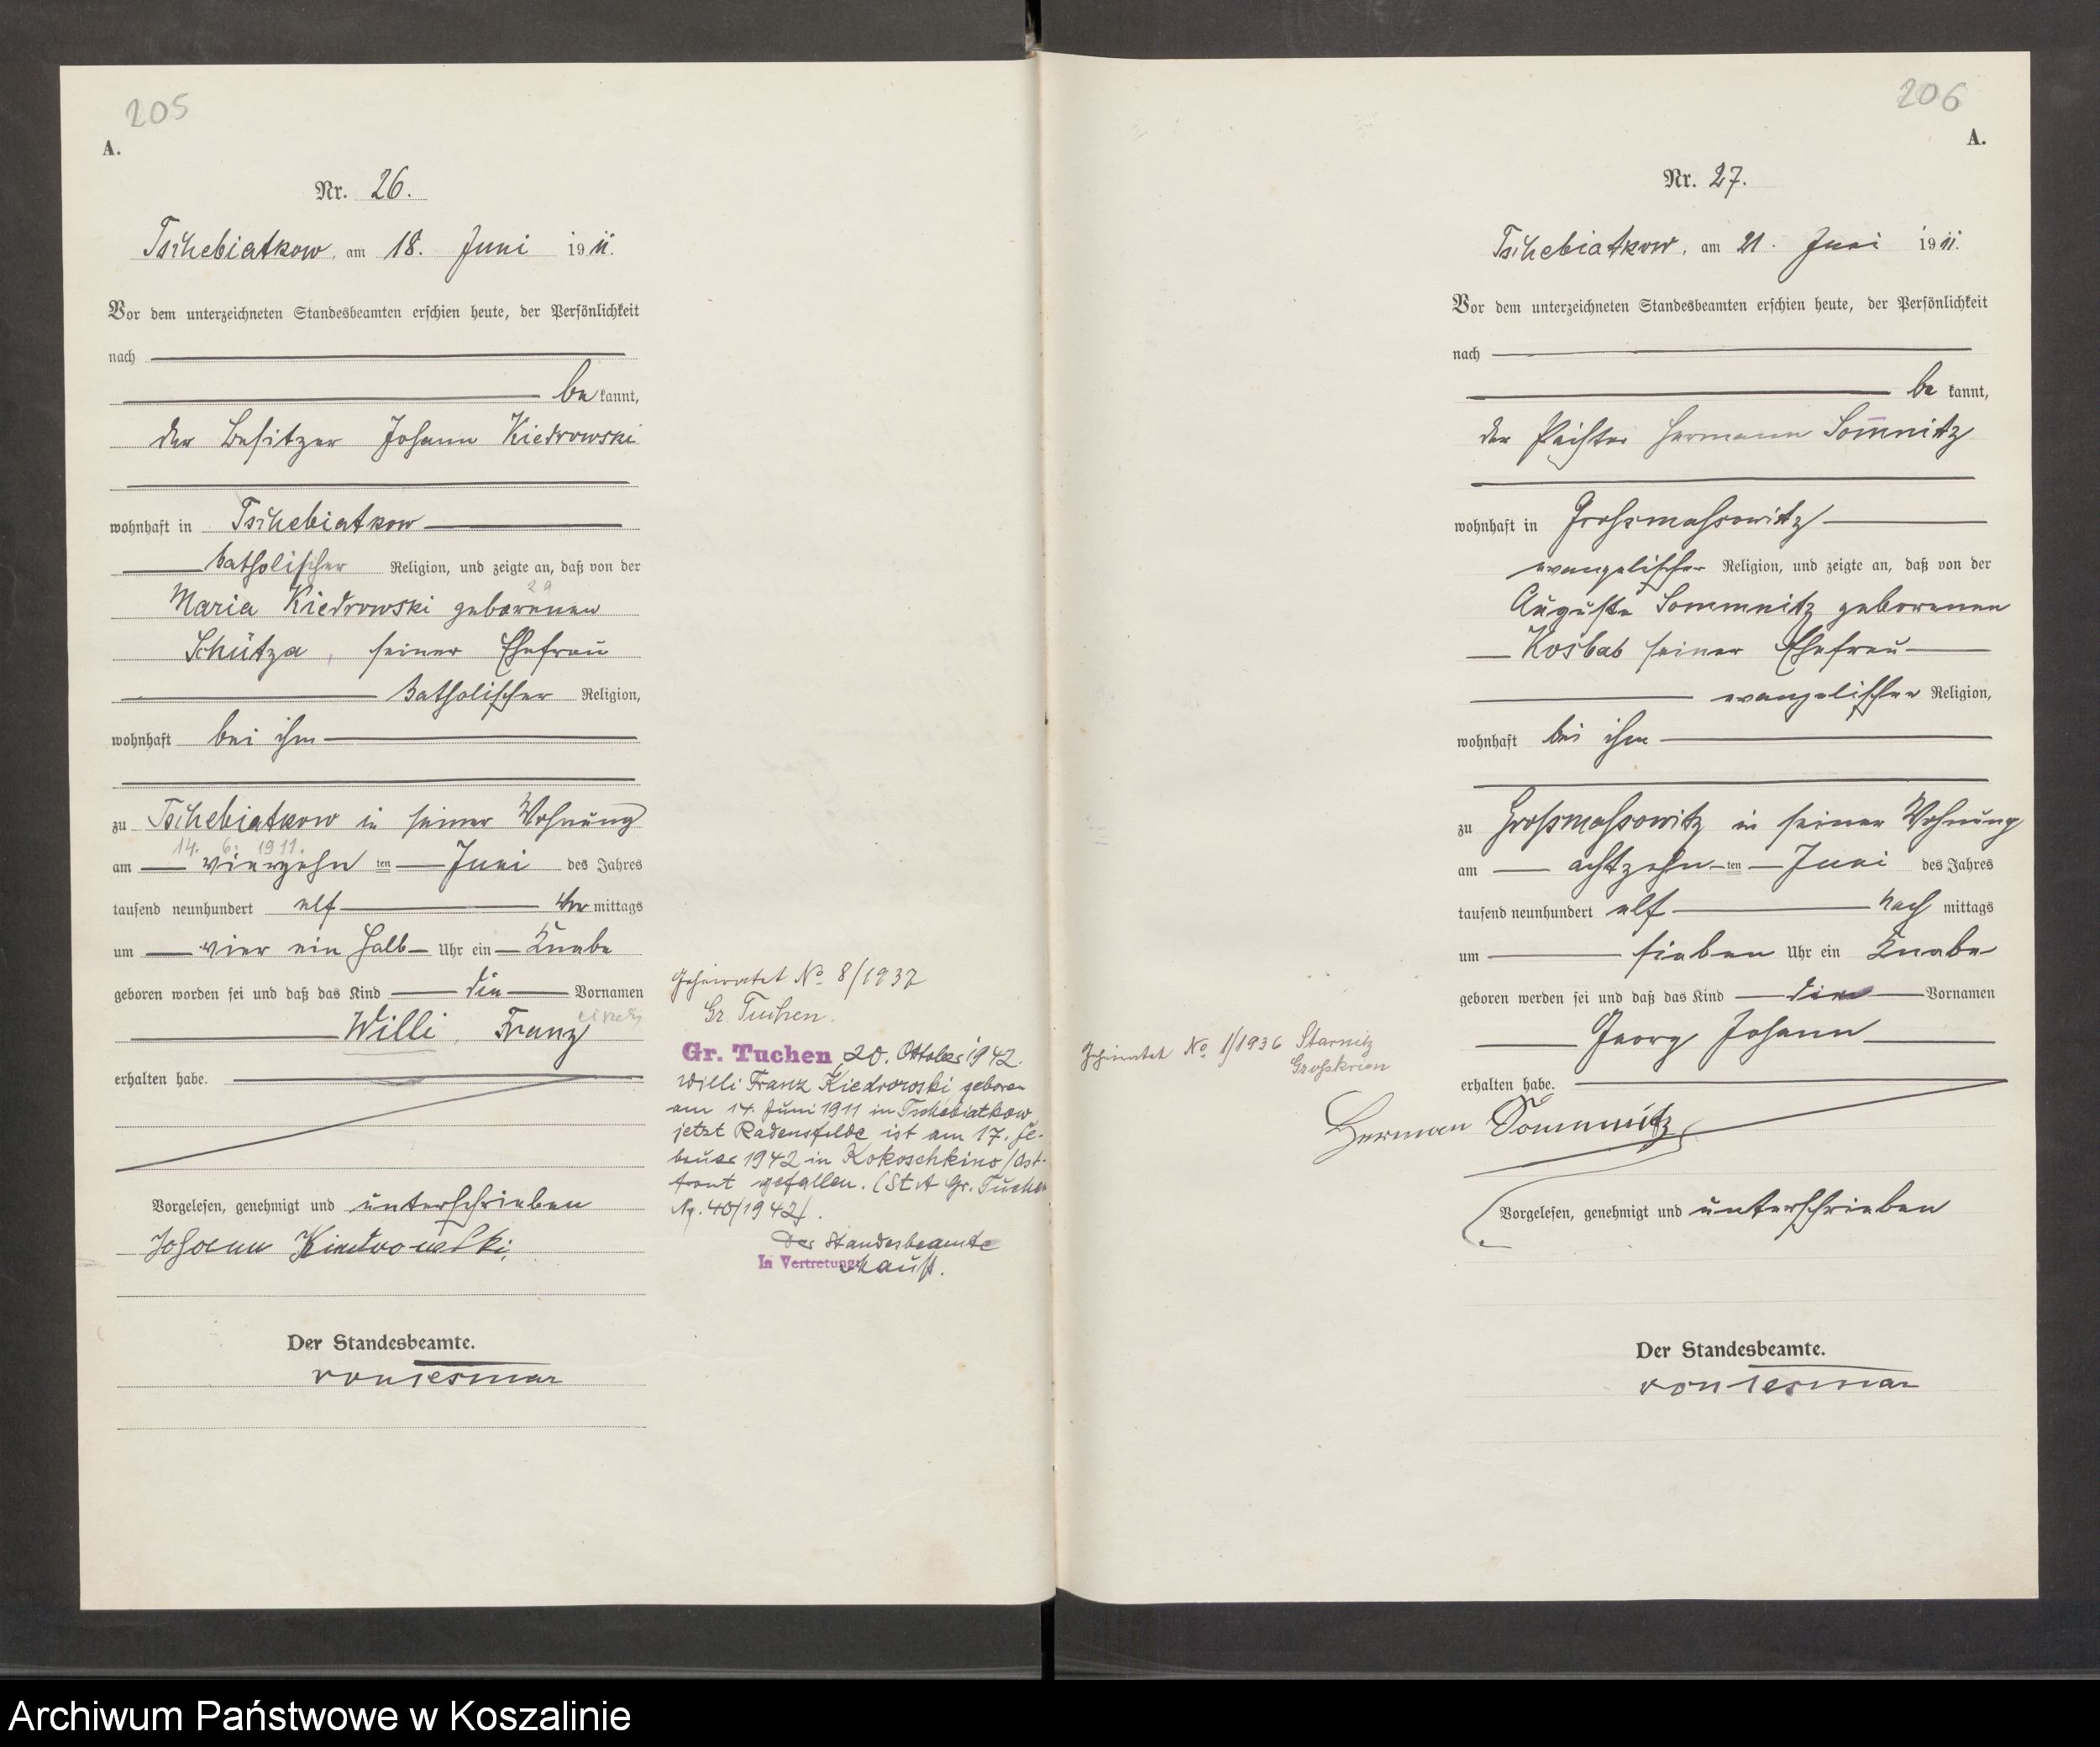 205
A.
Nr. 26.
Tschebiatkow, am 18. Juni 1911.
Vor dem unterzeichneten Standesbeamten erschien heute, der Persönlichkeit
nach
be kannt,
der Besitzer Johann Kiedrowski
wohnhaft in Tschebiatkow
katholischer Religion, und zeigte an, daß von der
29
Maria Kiedrowski geborenen
Schütza, seiner Ehefrau
katholischer Religion,
wohnhaft bei ihm
zu Tschebiatkow in seiner Wohnung
14. 6. 1911.
am vierzehn ten Juni des Jahres
tausend neunhundert elf Vor mittags
um vier ein halb Uhr ein Knabe
geboren worden sei und daß das Kind die Vornamen
Willi, Franz
erhalten habe.
Vorgelesen, genehmigt und unterschrieben
Johann Kiedrowski
Der Standesbeamte.
von Tesmar
Geheiratet No 8/1937
Gr. Tuchen.
Gr. Tuchen, 20. Oktober 1942.
Willi Franz Kiedrowski, geboren
am 14. Juni 1911 in Tschebiatkow,
jetzt Radensfelde, ist am 17. Fe-
bruar 1942 in Kokoschkino/Ost-
front gefallen. (StA Gr. Tuchen
Nr. 40/1942).
Der Standesbeamte
In Vertretung:
206
A.
Nr. 27.
Tschebiatkow, am 21. Juni 1911.
Vor dem unterzeichneten Standesbeamten erschien heute, der Persönlichkeit
nach
be kannt,
der Pächter Hermann Som̄nitz
wohnhaft in Grossmassowitz
evangelischer Religion, und zeigte an, daß von der
Auguste Sommnitz geborenen
Kosbab seiner Ehefrau
evangelischer Religion,
wohnhaft bei ihm
zu Grossmassowitz in seiner Wohnung
am achtzehn ten Juni des Jahres
tausend neunhundert elf Nach mittags
um sieben Uhr ein Knabe
geboren worden sei und daß das Kind die Vornamen
Georg Johann
erhalten habe.
Herman Sommnitz
Vorgelesen, genehmigt und unterschrieben
Der Standesbeamte.
von Tesmar
Geheiratet No 1/1936 Starnitz
Grosskrien
Archiwum Państwowe w Koszalinie